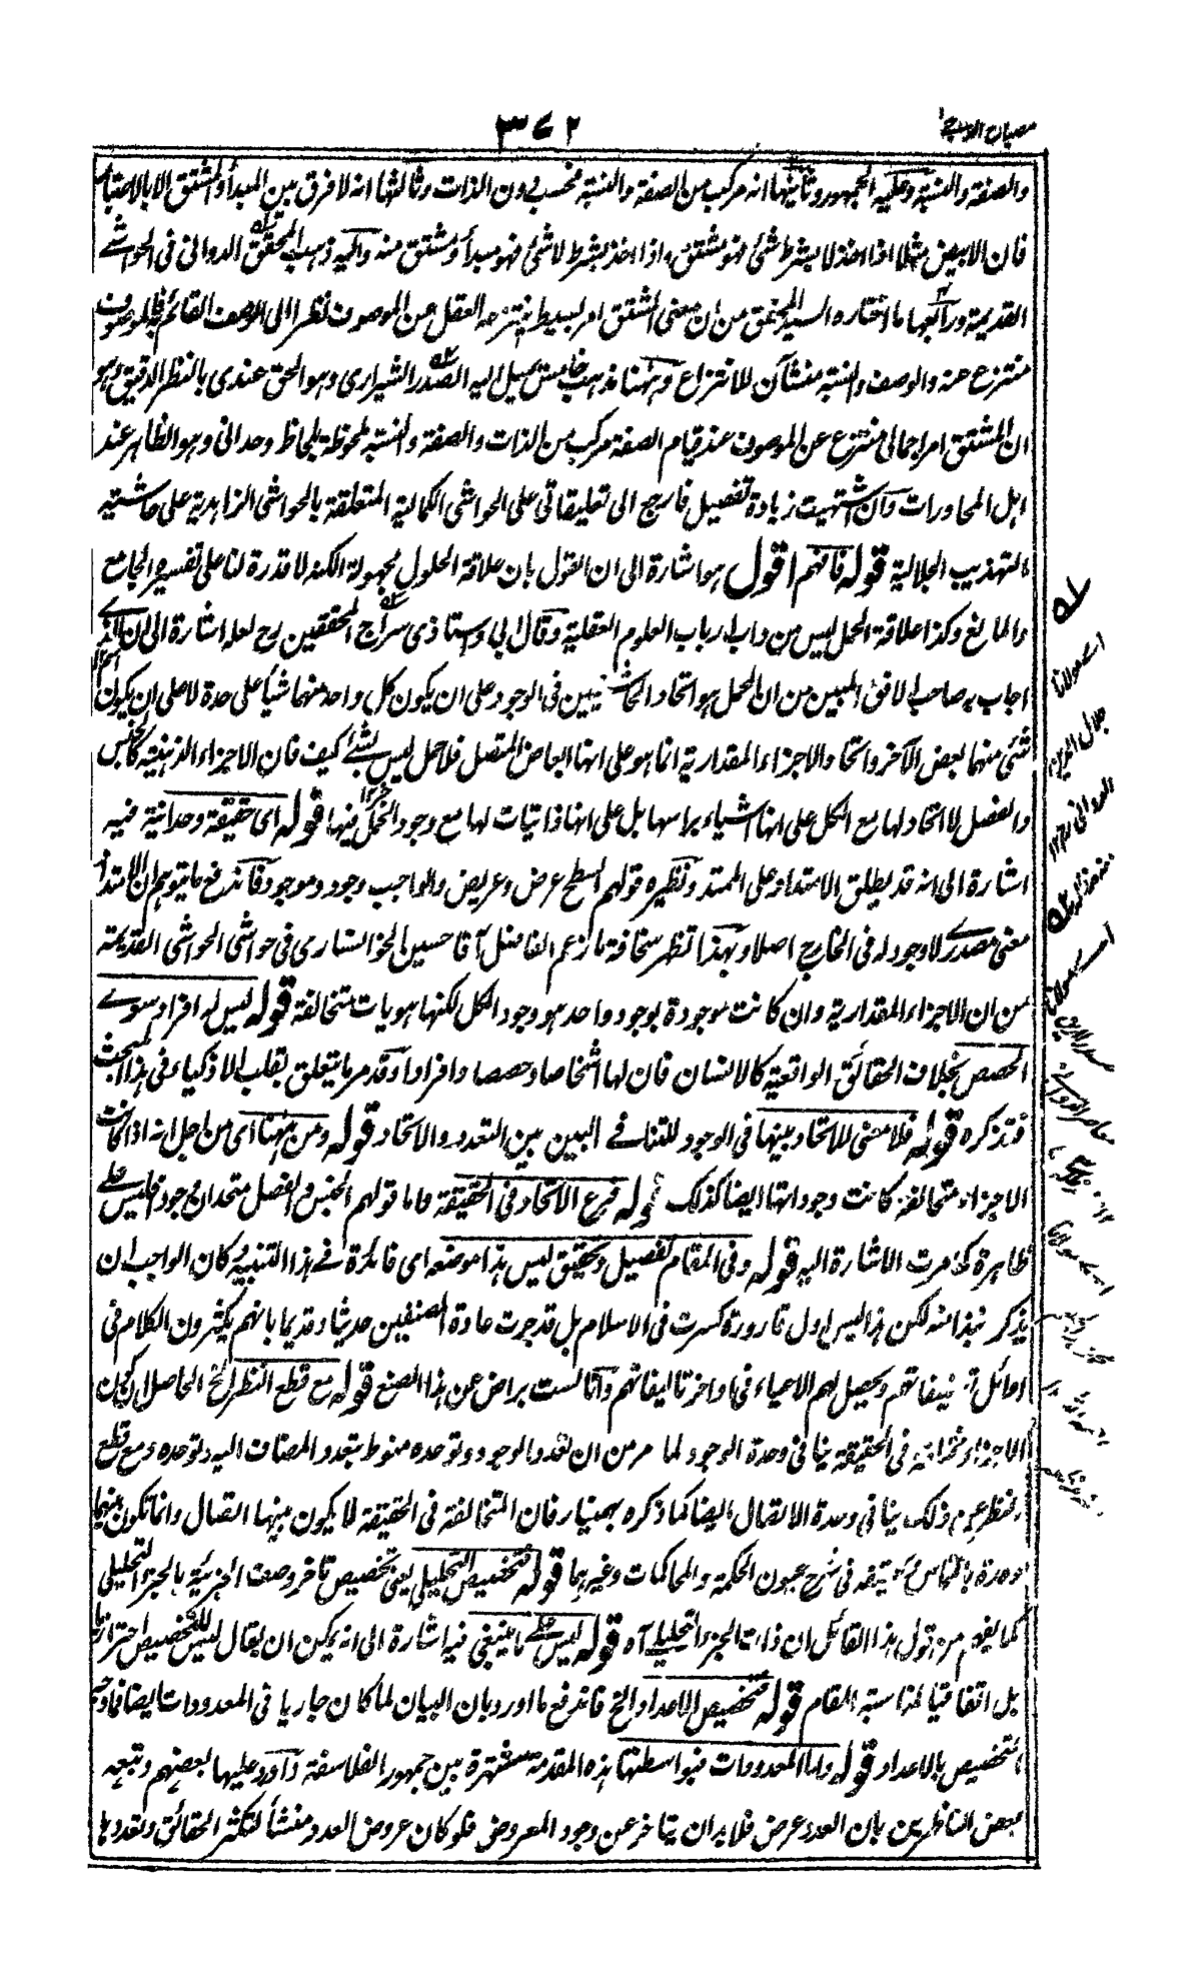 مصباح الدجى
٣٧٢
والصفة والنسبة وعليه الجمهور وثانيها انه مركب من الصفة والنسبة فحسب دون الذات وثالثها انه لا فرق بين المبدأ والمشتق الا بالاعتبار
فان الابيض مثلا اذا اخذ لا بشرط شئ فهو مشتق واذا اخذ بشرط لا شئ فهو مبدأ ومشتق منه واليه ذهب المحقق الدوانى فى الحواشے
القديمة ورابعها ما اختاره السيد المحقق من ان معنى المشتق امر بسيط ينتزعه العقل عن الموصوف نظرا الى الوصف القائم به فالموصوف
منتزع عنه والوصف والنسبة منشآن للانتزاع وههنا مذهب خامس يميل اليه الصدر الشيرازى وهو الحق عندى بالنظر الدقيق وهو
ان المشتق امر اجمالى منتزع عن الموصوف عند قيام الصفة مركب من الذات والصفة والنسبة ملحوظة بلحاظ وحدانى وهو الظاهر عند
اهل المحاورات وان اشتهيت زيادة تفصيل فارجع الى تعليقاتى على الحواشى الكمالية المتعلقة بالحواشى الزاهدية على حاشية
التهذيب الجلالية قوله فافهم اقول هو اشارة الى ان القول بان علاقة الحلول مجهولة الكنه لا قدرة لنا على تفسيره الجامع
والمانع وكذا علاقة الحمل ليس من داب ارباب العلوم العقلية وقال ابى واستاذى سراج المحققين رح لعله اشارة الى ان الذے
اجاب به صاحب الافق المبين من ان الحمل هو اتحاد الحاشيتين فى الوجود على ان يكون كل واحد منهما شيأ على حدة لا على ان يكون
شئ منهما بعض الآخر واتحاد الاجزاء المقدارية انما هو على انها ابعاض المتصل فلا حمل ليس بشئ كيف فان الاجزاء الذهنية كالجنس
والفصل لا اتحاد لها مع الكل على انها اشياء براسها بل على انها ذاتيات لها مع وجود الحمل فيها قوله اى حقيقة وحدانية فيه
اشارة الى انه قد يطلق الامتداد على الممتد ونظيره قولهم السطح عرض وعريض والواجب وجود وموجود فاندفع ما يتوهم ان الامتداد
معنى مصدرے لا وجود له فى الخارج اصلا وبهذا تظهر سخافة ما زعم الفاضل آقا حسين الخوانسارى فى حواشى الحواشى القديمة
من ان الاجزاء المقدارية وان كانت موجودة بوجود واحد هو وجود الكل لكنها هويات متخالفة قوله ليس له افراد سوے
الحصص بخلاف الحقائق الواقعية كالانسان فان لها اشخاصا وحصصا وافرادا وقد مر ما يتعلق بقلب الاذكياء فى هذا المبحث
فتذكره قوله فلا معنى للاتحاد بينها فى الوجود للتنافے البين بين التعدد والاتحاد قوله ومن ههنا اى من اجل انه اذا كانت
الاجزاء متخالفة كانت وجوداتها ايضا كذلك قوله فرع الاتحاد فى الحقيقة واما قولهم الجنس والفصل متحدان فى وجود فليس علے
ظاهره كما مرت الاشارة اليه قوله وفى المقام تفصيل وتحقيق ليس هذا موضعه اى فائدة فے هذا التنبيه كان الواجب ان
يذكر نبذا منه لكن هذا ليس اول قارورة كسرت فى الاسلام بل قد جرت عادة المصنفين حديثا وقديما بانهم يكثرون الكلام فى
اوائل تصنيفاتهم ويحصل لهم الاعياء فى اواخر تاليفاتهم وانا لست براض عن هذا الصنع قوله مع قطع النظر الخ الحاصل ان كون
الاجزاء متخالفة فى الحقيقة ينافى وحدة الوجود لما مر من ان تعدد الوجود وتوحده منوط بتعدد المضاف اليه وتوحده ومع قطع
النظر عن ذلك ينافى وحدة الاتصال ايضا كما ذكره بهمنيار فان المتخالفة فى الحقيقة لا يكون بينها اتصال وانما تكون بينها
وحدة بالتماس فى شرح عيون الحكمة والمحاكمات وغيرهما قوله فتخصيص التحليلى يعنى تخصيص تاخر وصف الجزئية بالجزء التحليلى
كما يفهم من قول هذا القائل ان ذات الجزء التحليلے آه قوله ليس علے ما ينبغى فيه اشارة الى انه يمكن ان يقال ليس التخصيص احترازيا
بل اتفاقيا لمناسبة المقام قوله تخصيص الاعداد الخ فاندفع ما اورد بان البيان لما كان جاريا فى المعدودات ايضا فما وجه
التخصيص بالاعداد قوله واما المعدودات فبواسطتها هذه المقدمة مشتهرة بين جمهور الفلاسفة واورد عليها بعضهم وتبعه
بعض الناظرين بان العدد عرض فلا بد ان يتاخر عن وجود المعروض فلو كان عروض العدد منشأ لتكثر الحقائق وتعددها
اے مولانا
جلال الدين
الدوانى ١٢
اے مولانا
صدر الدين
معاصر الدوانے